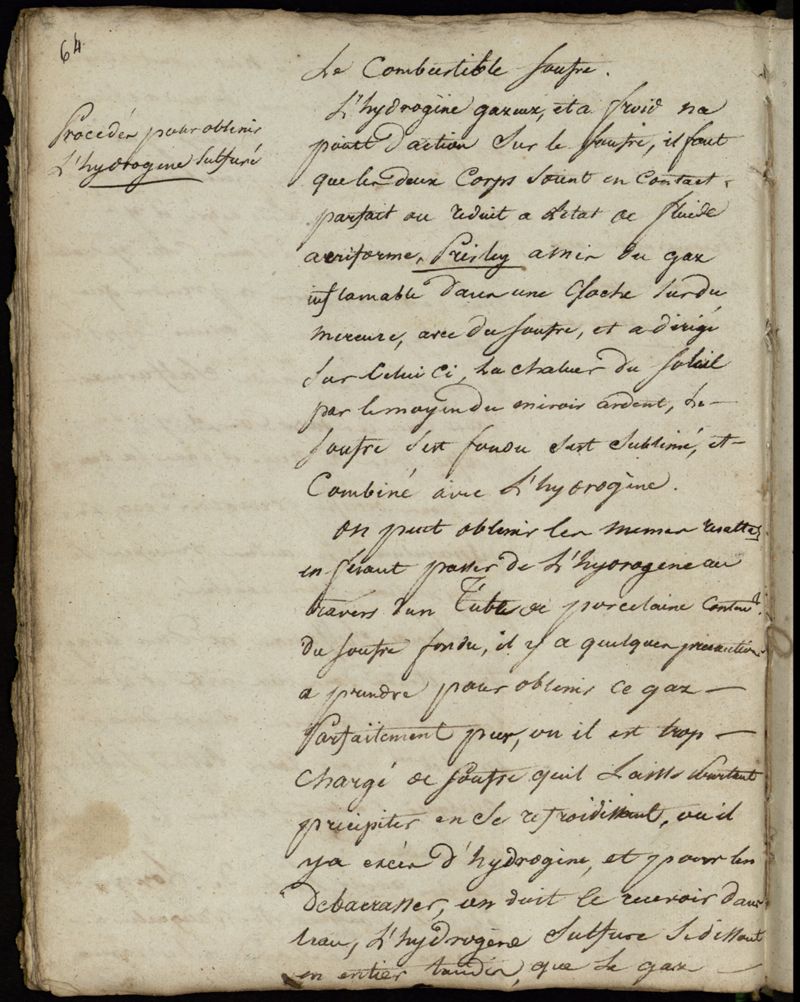 64
Procédés pour obtenir
L'hydrogene sulfuré
Le Combustible soufre.
L'hydrogène gazeux, et a froid na
point d'action sur le soufre, il faut
que les deux Corps soient en Contact
parfait ou reduit a l'etat de fluide
aeriforme, Prisley a mis du gaz
inflamable dans une Cloche sur du
mercure, avec du soufre, et a dirigé
sur Celui ci, la chaleur du soleil
par le moyen du miroir ardent, Le
soufre s'est fondu s'est sublimé, et
Combiné avec L'hydrogène.
on peut obtenir les memes
en fesant passer de L'hydrogene au
travers d'un Tube de porcelaine Conten.t
du soufre fondu, il y a quelques precautions
a prendre pour obtenir ce gaz
Parfaitement pur, ou il est trop
Chargé de soufre quil Laisse
précipiter en se refroidissant, ou il
y a excès d'hydrogène, et pour len
debarrasser, on doit le recevoir dans
leau, L'hydrogène sulfure se dissout
en entier tandis, que Le gaz